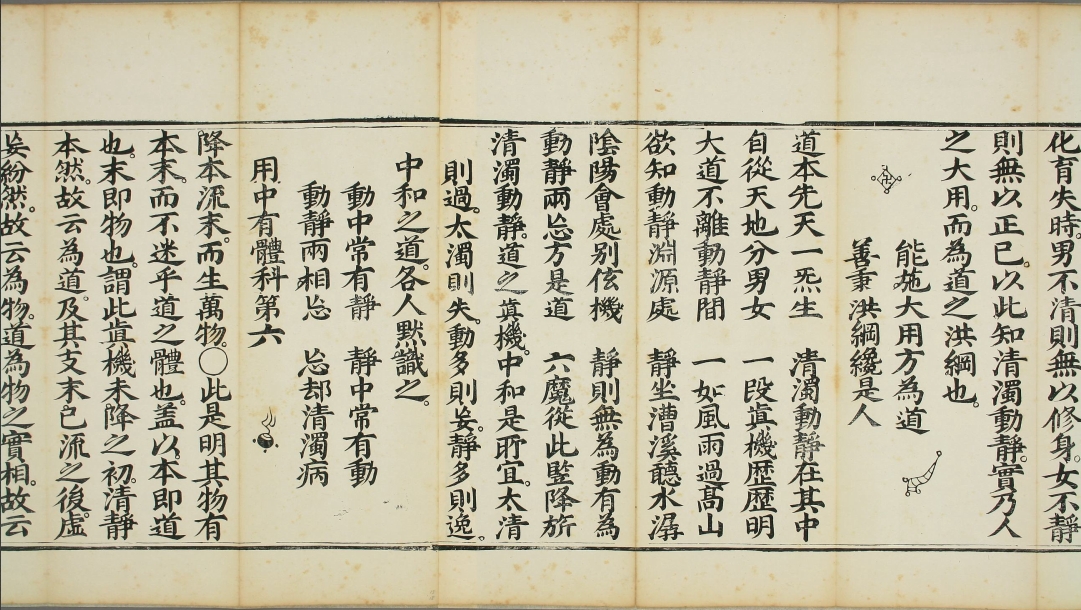 化育失時。男不清則無以修身。女不靜
則無以正已。以此知清濁動靜。實乃人
之大用。而為道之洪綱也。
能施大用方為道
善秉洪綱纔是人
道本先天一炁生　清濁動靜在其中
自從天地分男女　一段真機歷歷明
大道不離動靜間　一如風雨過髙山
欲知動靜淵源處　靜坐漕溪聽水潺
陰陽會處別佉機　靜則無為動有為
動靜兩忘方是道　六魔從此竪降旂
清濁動靜。道之真機。中和是所宜。太清
則過。太濁則失。動多則妄。靜多則逸。
中和之道。各人默識之。
動中常有靜　靜中常有動
動靜兩相忘　忘却清濁病
用中有體科第六
降本流末。而生萬物。〇此是明其物有
本末。而不迷乎道之體也。盖以。本即道
也。末即物也。謂此真機未降之初。清靜
本然。故云為道。及其支末已流之後。虛
妄紛然。故云為物。道為物之實相。故云